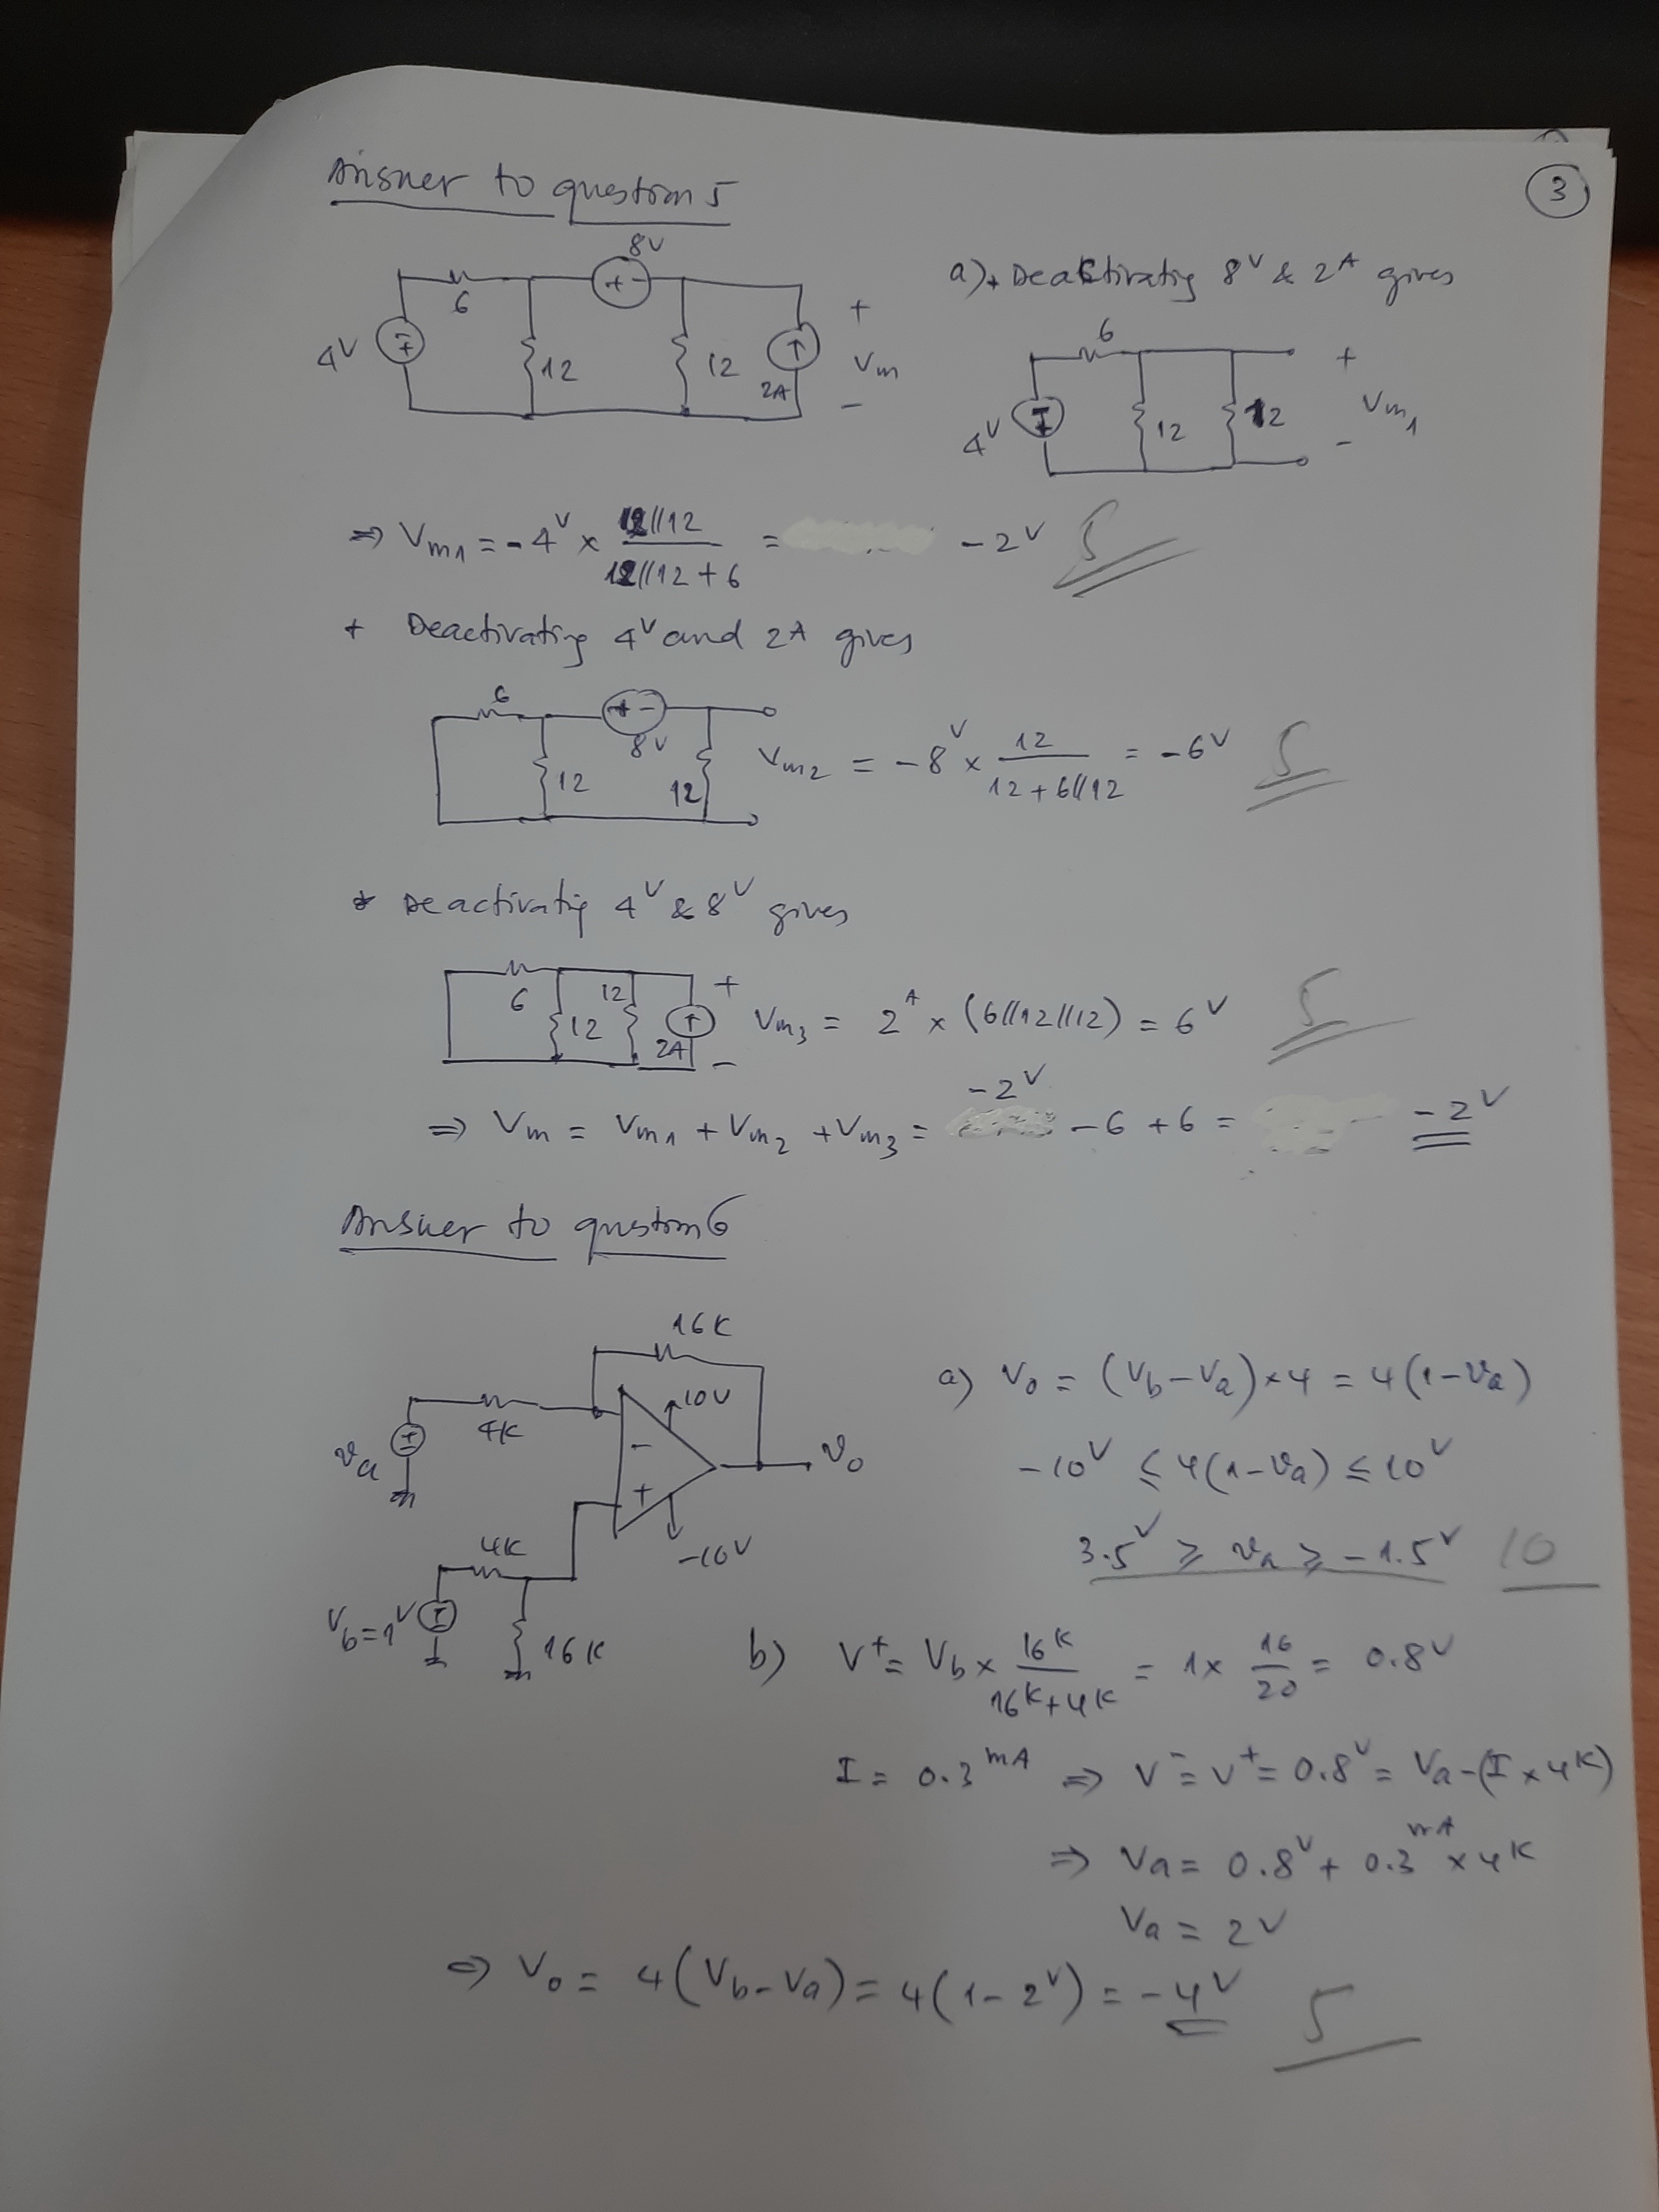 3
Answer to question 5
8V
+ -
6
4V
12
12
2A
+
Vm
-
a) + Deactivating 8V & 2A gives
6
4V
12
12
+
Vm1
-
⇒ Vm1 = -4V × 12//12 / 12//12 + 6 = -2V 5
+ Deactivating 4V and 2A gives
6
+ -
8V
12
12
Vm2 = -8V × 12 / 12 + 6//12 = -6V 5
* Deactivating 4V & 8V gives
6
12
12
2A
+
-
Vm3 = 2A × (6//12//12) = 6V 5
⇒ Vm = Vm1 + Vm2 + Vm3 = -2V - 6 + 6 = -2V
Answer to question 6
16K
10V
4K
va
-
+
vo
-10V
4K
Vb=1V
16K
a) Vo = (Vb - Va) × 4 = 4(1 - Va)
-10V ≤ 4(1 - Va) ≤ 10V
3.5V ≥ va ≥ -1.5V 10
b) V+ = Vb × 16K / 16K + 4K = 1 × 16 / 20 = 0.8V
I = 0.3mA ⇒ V- = V+ = 0.8V = Va - (I × 4K)
⇒ Va = 0.8V + 0.3mA × 4K
Va = 2V
⇒ Vo = 4(Vb - Va) = 4(1 - 2V) = -4V 5